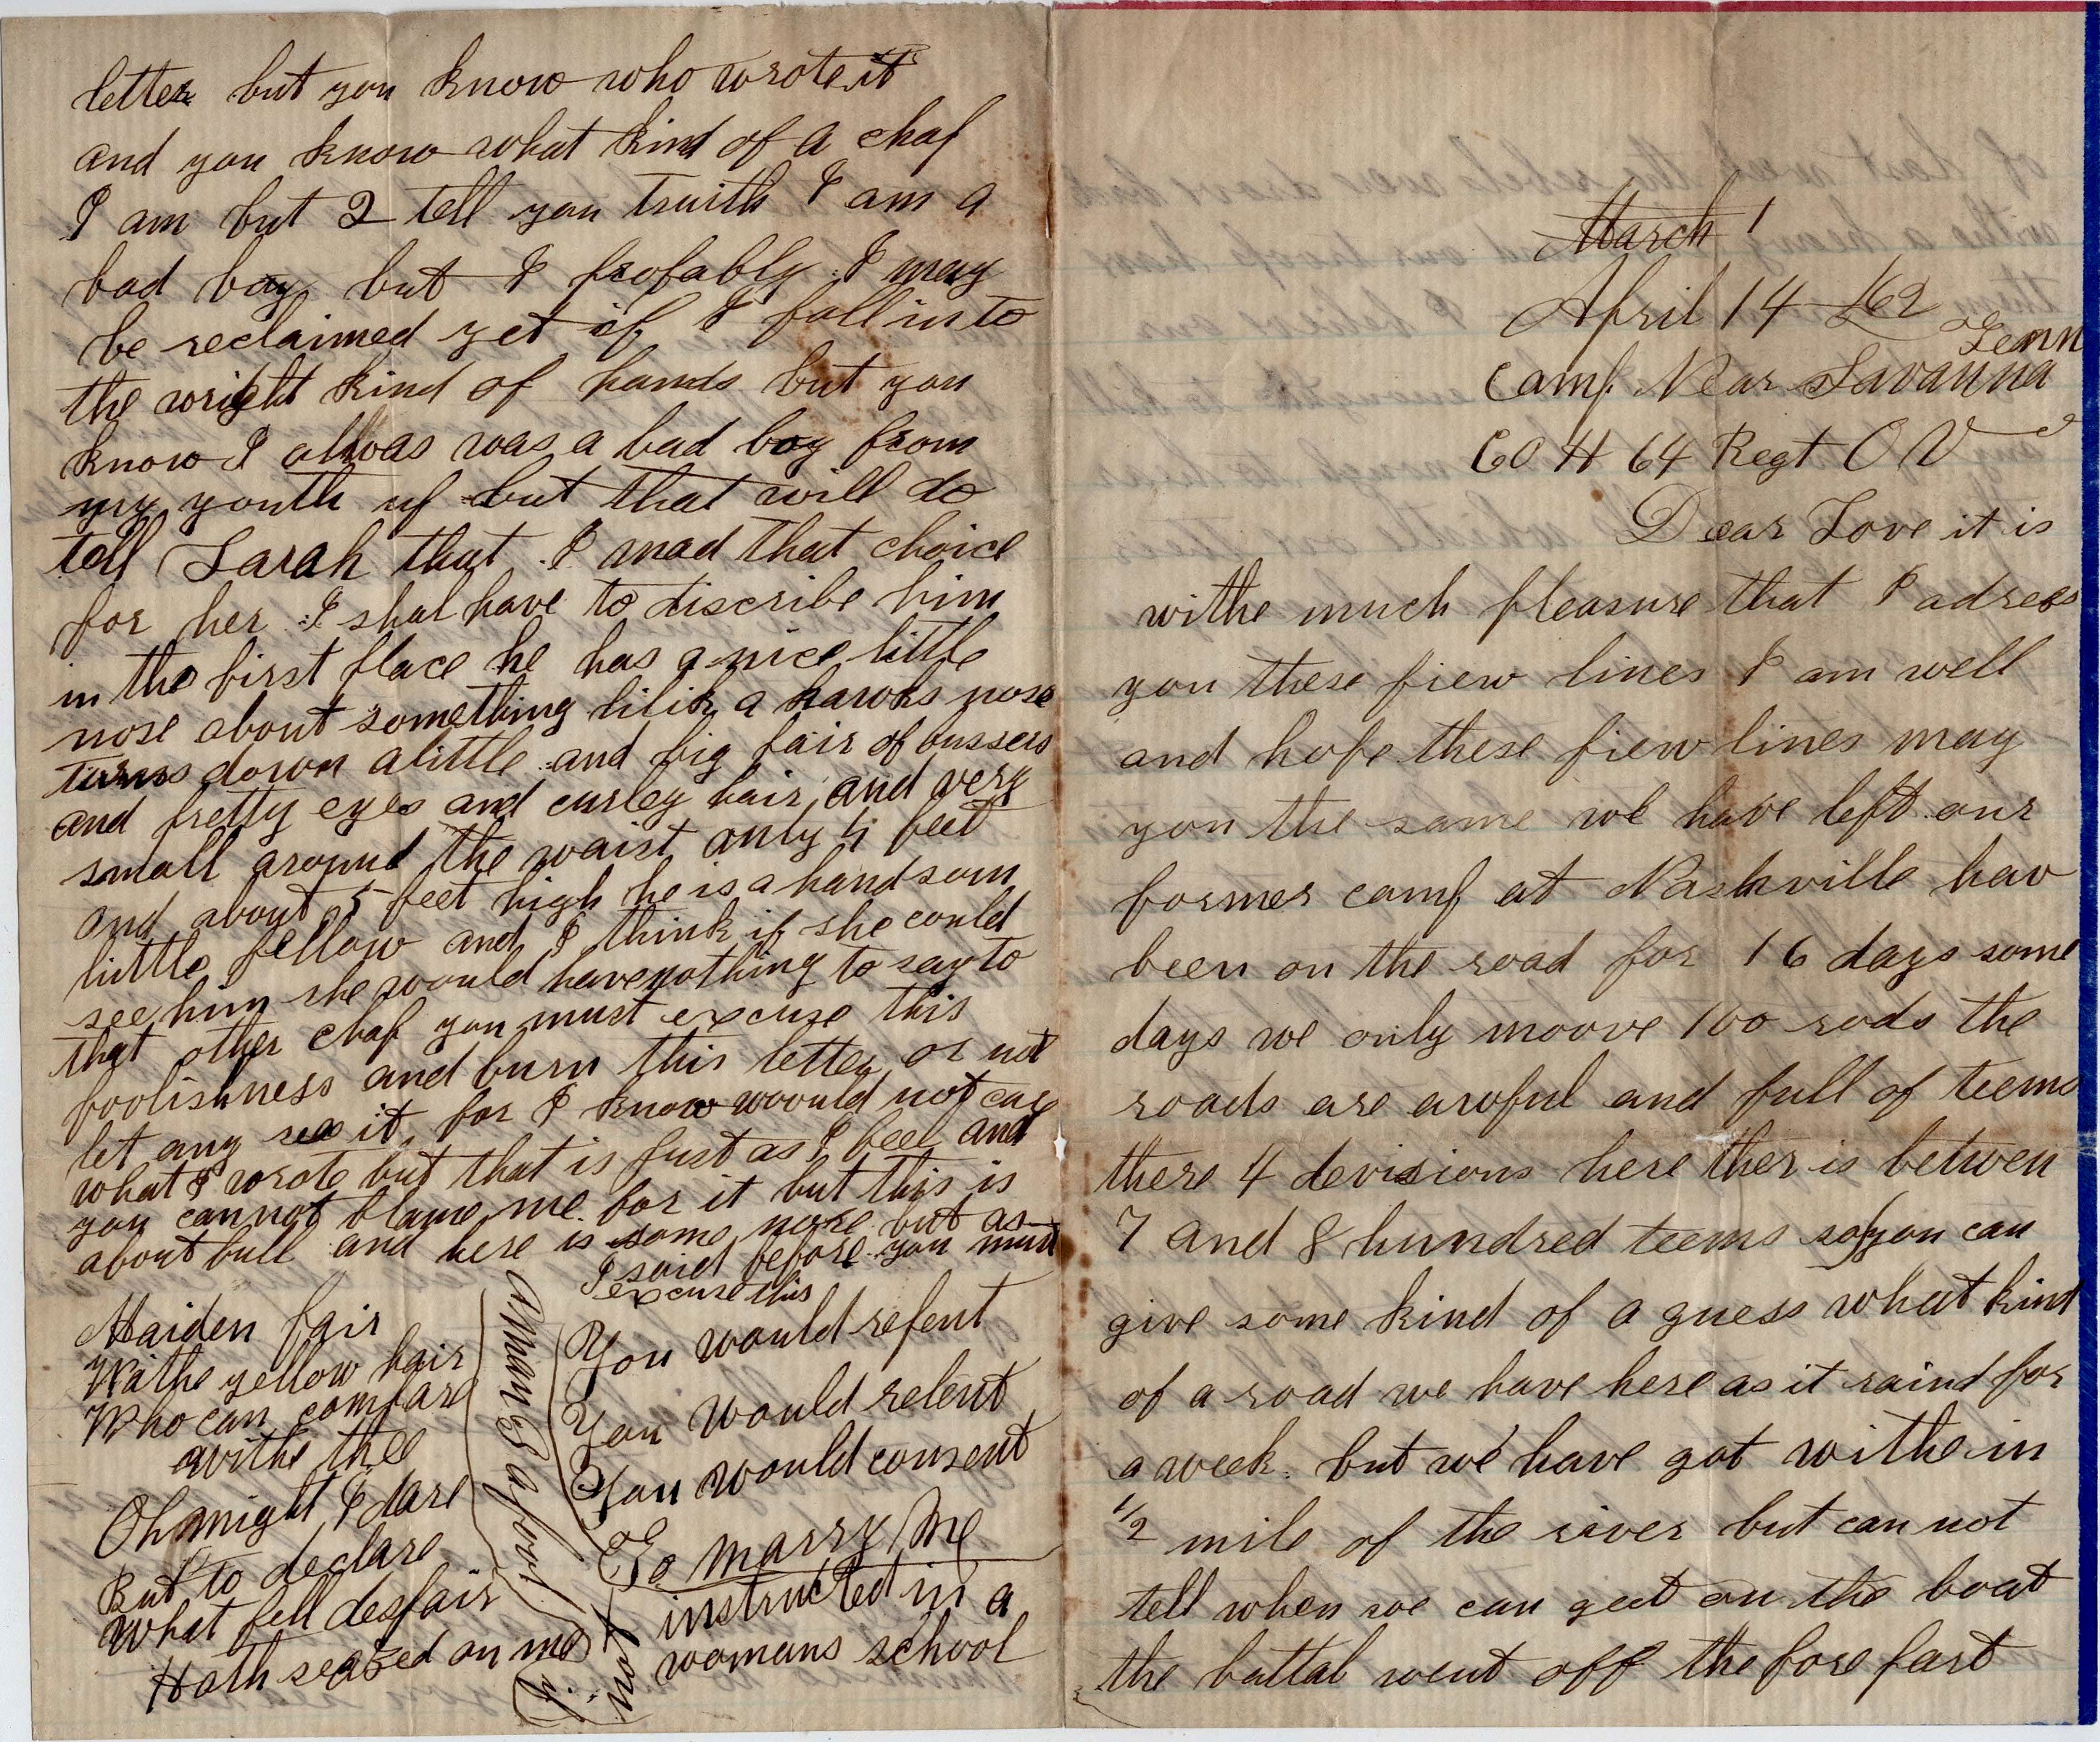 March 1
April 14 /62
Tenn
Camp Near Savanna
CO H 64 Regt O V
Dear Love it is
withe much pleasure that I adress
you these fiew lines I am well
and hope these fiew lines may
you the same we have left our
former camp at Nashville hav
been on the road for 16 days some
days we only moove 100 rods the
roads are awful and full of teems
there 4 devisions here ther is betwen
7 and 8 hundred teems so you can
give some kind of a guess what kind
of a road we have here as it raind for
a week. but we have got withe in
1/2 mile of the river but can not
tell when we can get on the boat
the battal went off the fore part
letter but you know who wrote it
and you know what kind of a chap
I am but I tell you truith I am a
bad boy but I propably I may
be reclaimed yet if I fall into
the wright kind of hands but you
know I allwas was a bad boy from
my youth up but that will do
tell Sarah that I mad that choice
for her I shal have to discribe him
in the first place he has a nice little
nose about something lilik a hawks nose
turns down a little and big pair of bussers
and pretty eyes and curley hair and very
small around the waist only 4 feet
and about 5 feet high he is a handsom
little fellow and I think if she could
see him she would have nothing to say to
that other chap you must excuse this
foolishness and burn this letter or not
let any see it for I know woould not care
what I wrote but that is just as I feel and
you cannot blame me for it but this is
about full and here is some more but as
I said before you must
excuse this
Maiden fair
Withe yellow hair
Who can compare
withe thee
Oh might I dare
But to declare
What fell despair
Hath seazed on me
A man is a fool
if
not
You would repent
You would relent
You would consent
To marry me
instructed in a
womans school